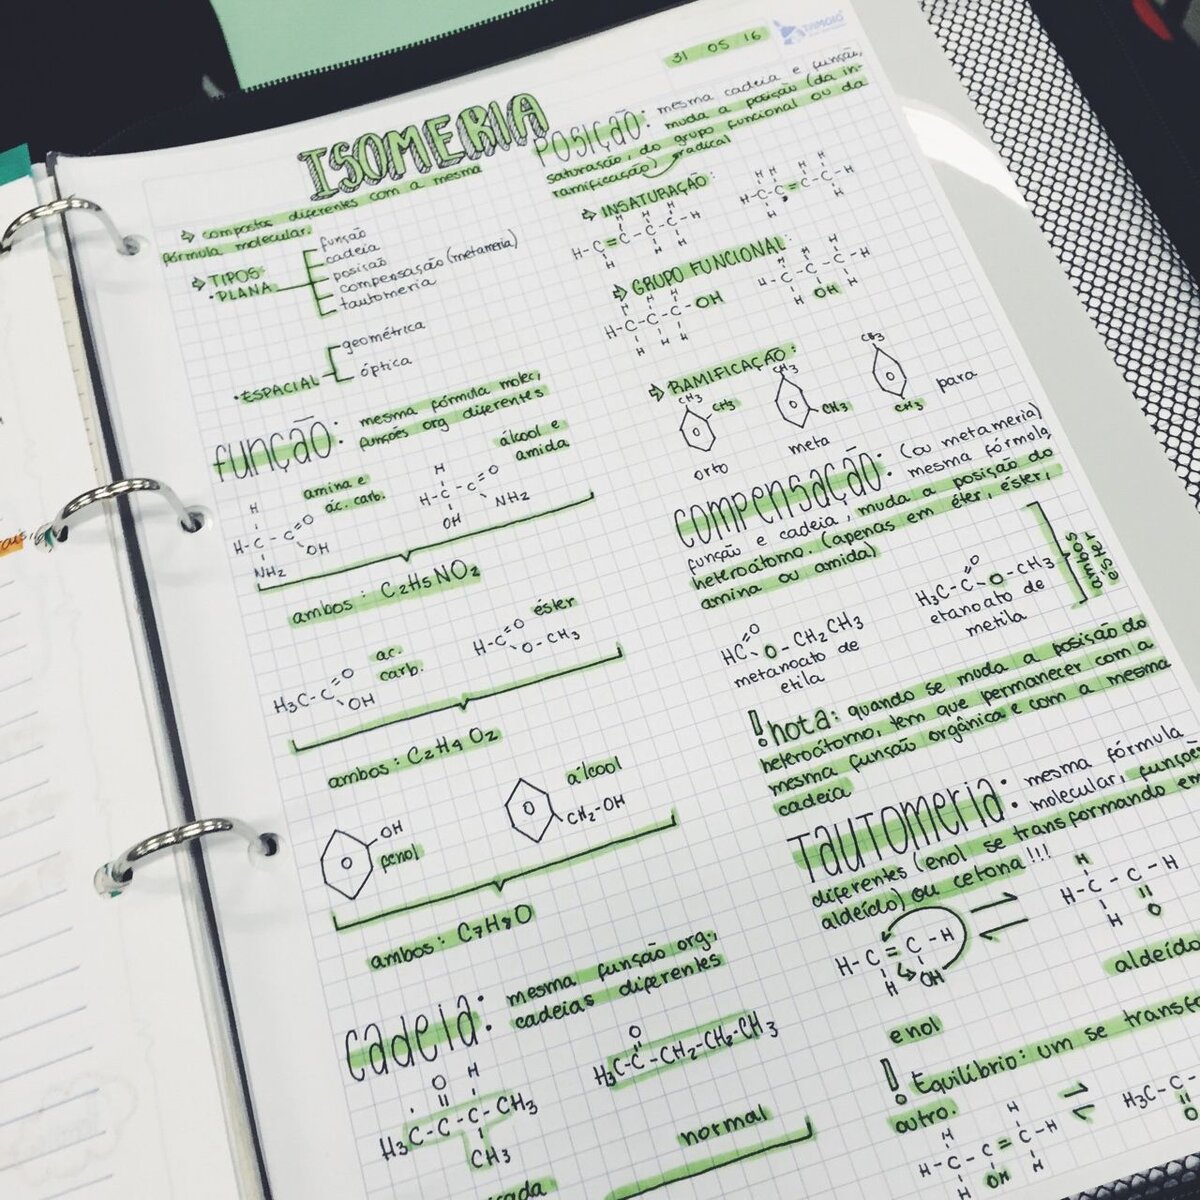 TAMOIO
31 05 16
ISOMERIA
⇒ compostos diferentes com a mesma
fórmula molecular.
⇒ TIPOS:
• PLANA
função
cadeia
posição
compensação (metameria)
tautomeria
• ESPACIAL
geométrica
óptica
função: mesma fórmula molec,
funções org diferentes
amina e
ác. carb.
H
H-C-C=O
OH
NH2
álcool e
amida
H
H-C-C=O
NH2
OH
ambos: C2H5NO2
ac.
carb.
H3C-C=O
OH
éster
H-C=O
O-CH3
ambos: C2H4O2
OH
fenol
álcool
CH2-OH
ambos: C7H8O
cadeia: mesma função org.,
cadeias diferentes
O H
H3C-C-C-CH3
CH3
O
H3C-C-CH2-CH2-CH3
normal
POSIÇÃO: mesma cadeia e função,
muda a posição (da in-
saturação, do grupo funcional ou da
ramificação) radical
⇒ INSATURAÇÃO:
H H H
H-C=C-C-C-H
H H H
H H H H
H-C-C=C-C-H
H H
⇒ GRUPO FUNCIONAL:
H H H
H-C-C-C-OH
H H H
H H H
H-C-C-C-H
H OH H
⇒ RAMIFICAÇÃO:
CH3
CH3
orto
CH3
CH3
meta
CH3
CH3
para
COMPENSAÇÃO: (ou metameria)
mesma fórmula,
função e cadeia, muda a posição do
heteroátomo. (apenas em éter, éster,
amina ou amida)
HC=O
O-CH2CH3
metanoato de
etila
H3C-C=O
O-CH3
etanoato de
metila
ambos
éster
! nota: quando se muda a posição do
heteroátomo, tem que permanecer com a
mesma função orgânica e com a mesma
cadeia
TAUTOMERIA: mesma fórmula
molecular, funções
diferentes (enol se transformando em
aldeído) ou cetona!!!
H-C=C-H
H OH
enol
H
H-C-C-H
H O
aldeído
! Equilíbrio: um se transf
outro.
H H
H-C-C=C-H
H OH H
H3C-C-
O